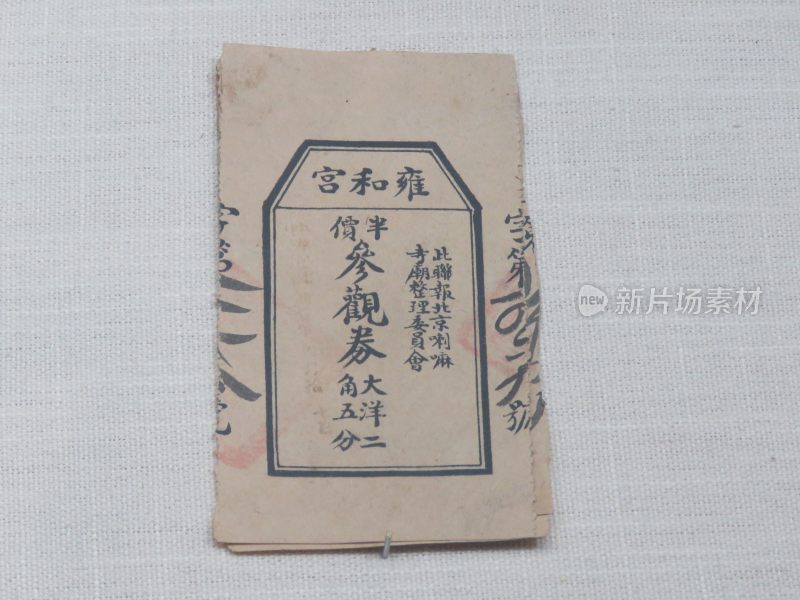 雍和宮
此聯報北京喇嘛
寺廟整理委員會
半價
參觀券
大洋二
角五分
字第
號
new
新片场素材